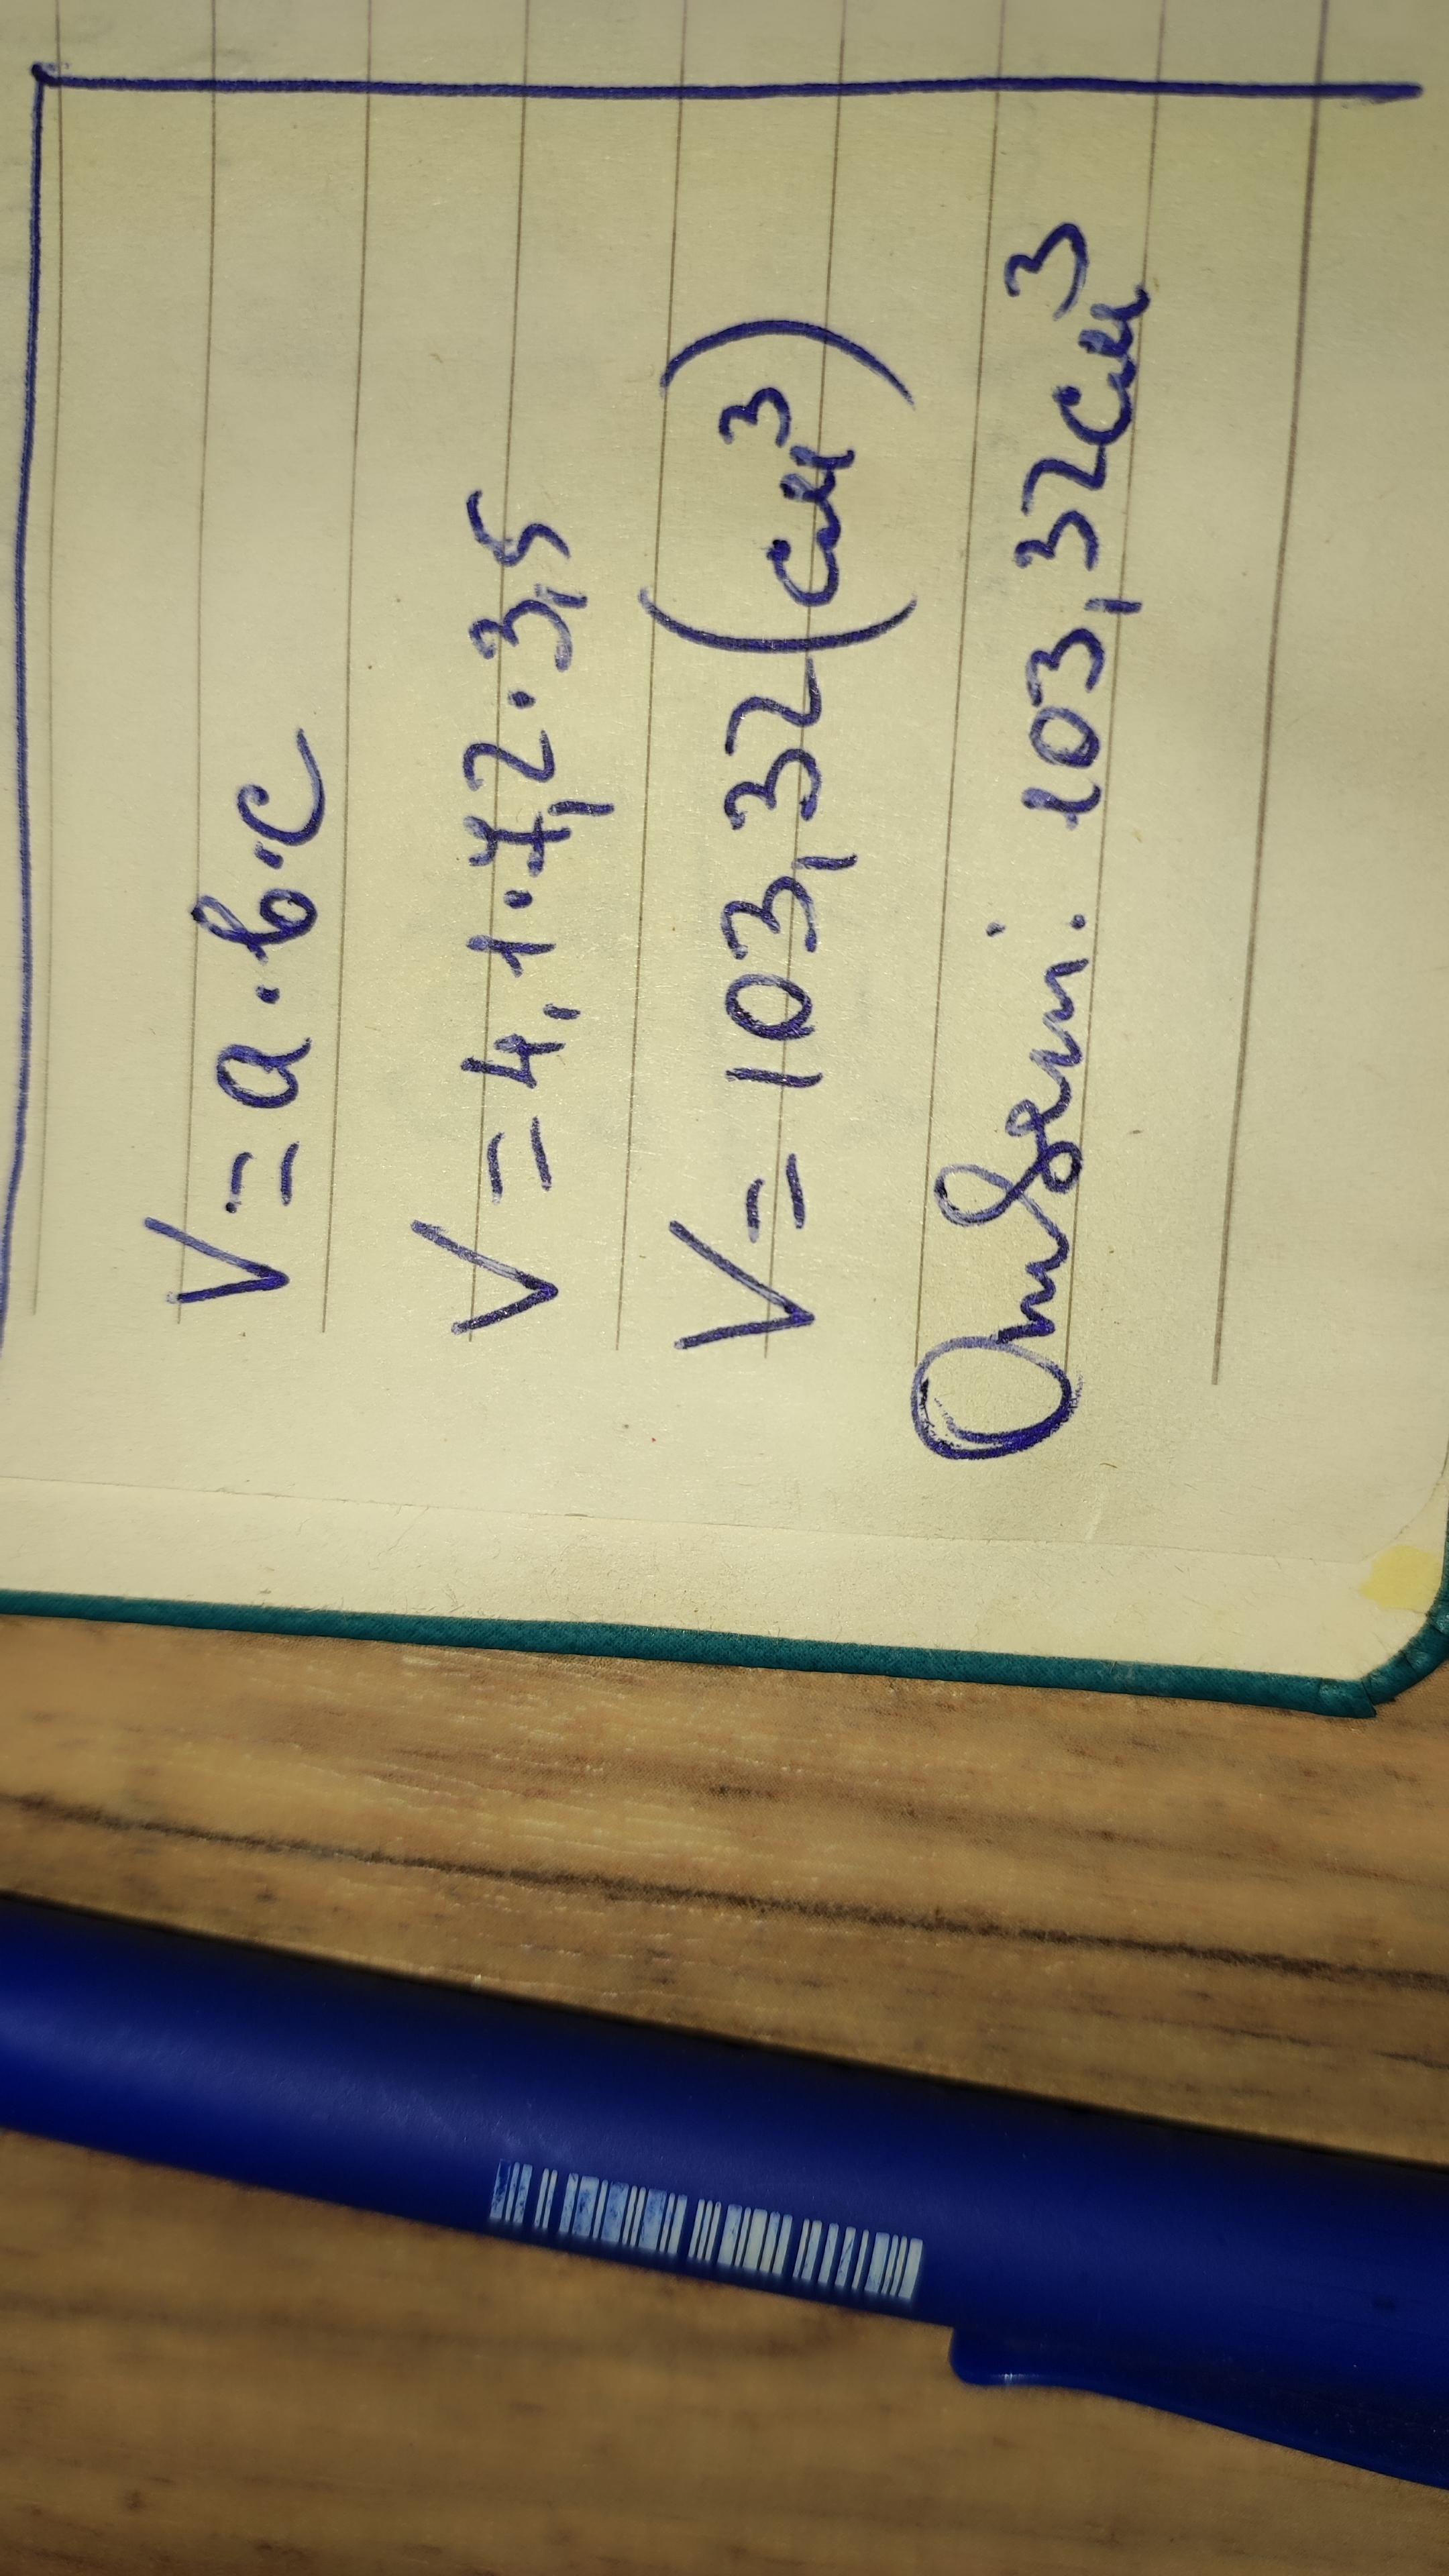 V = a · b · c
V = 4,1 · 7,2 · 3,5
V = 103,32 (см³)
Ответ: 103,32 см³